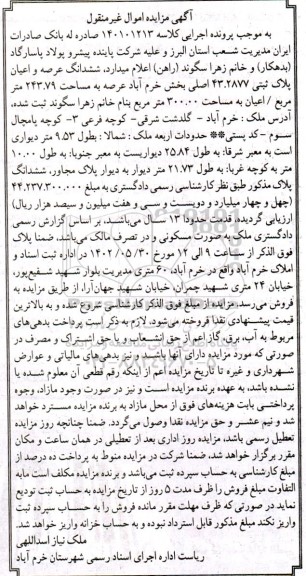 آگهی مزایده اموال غیرمنقول
به موجب پرونده اجرایی کلاسه ۱۴۰۱۰۱۲۱۳ صادره له بانک صادرات
ایران مدیریت شعب استان البرز و علیه شرکت پاینده پیشرو پولاد پاسارگاد
(بدهکار) و خانم زهرا سگوند (راهن) اعلام میدارد، ششدانگ عرصه و اعیان
پلاک ثبتی ۴۳.۲۸۷۷ اصلی بخش خرم آباد عرصه به مساحت ۲۴۳.۷۹ متر
مربع / اعیان به مساحت ۳۰۰.۰۰ متر مربع بنام خانم زهرا سگوند ثبت شده،
آدرس ملک : خرم آباد - گلدشت شرقی- کوچه فرعی ۳- کوچه پامچال
سوم - کد پستی** حدودات اربعه ملک : شمالا : بطول ۹.۵۳ متر دیواری
است به معبر شرقا: به طول ۲۵.۸۴ دیواریست به معبر جنوبا: به طول ۱۰.۰۰
متر به کوچه غربا: به طول ۲۱.۷۳ متر دیوار به دیوار پلاک مجاور، ششدانگ
پلاک مذکور طبق نظر کارشناسی رسمی دادگستری به مبلغ ۴۴.۲۳۷.۳۰۰.۰۰۰
(چهل و چهار میلیارد و دویست و سی و هفت میلیون و سیصد هزار ریال)
ارزیابی گردیده، قدمت حدودا ۱۳ سال می‌باشد. بر اساس گزارش رسمی
دادگستری ملک به صورت مسکونی و در تصرف مالک می‌باشد. ضمنا پلاک
فوق الذکر از ساعت ۹ الی ۱۲ مورخ ۱۴۰۲/۰۵/۳۰ در اداره ثبت اسناد و
املاک خرم آباد واقع در خرم آباد، ۶۰ متری مدیریت بلوار شهید شفیع‌پور،
خیابان ۲۴ متری شهید چمران، خیابان شهید جهان‌آرا، از طریق مزایده به
فروش می‌رسد. مزایده از مبلغ فوق الذکر کارشناسی شروع شده و به بالاترین
قیمت پیشنهادی نقدا فروخته می‌شود. لازم به ذکر است پرداخت بدهی‌های
مربوط به آب، برق، گاز اعم از حق انشعاب و یا حق اشتراک و مصرف در
صورتی که مورد مزایده دارای آنها باشد و نیز بدهی‌های مالیاتی و عوارض
شهرداری و غیره تا تاریخ مزایده اعم از اینکه رقم قطعی آن معلوم شده یا
نشده باشد، به عهده برنده مزایده است و نیز در صورت وجود مازاد، وجوه
پرداختی بابت هزینه‌های فوق از محل مازاد به برنده مزایده مسترد خواهد
شد و نیم عشر و حق مزایده نقدا وصول می‌گردد. ضمنا چنانچه روز مزایده
تعطیل رسمی باشد، مزایده روز اداری بعد از تعطیلی در همان ساعت و مکان
مقرر برگزار خواهد شد، ضمنا شرکت در مزایده منوط به پرداخت ده درصد از
مبلغ کارشناسی به حساب سپرده ثبت می‌باشد و برنده مزایده مکلف است مابه
التفاوت مبلغ فروش را ظرف مدت ۵ روز از تاریخ مزایده به حساب ثبت تودیع
نماید در صورتی که ظرف مهلت مقرر مانده فروش را به حساب سپرده ثبت
واریز نکند مبلغ مذکور قابل استرداد نبوده و به حساب خزانه واریز خواهد شد.
ملک نیاز اسداللهی
ریاست اداره اجرای اسناد رسمی شهرستان خرم آباد